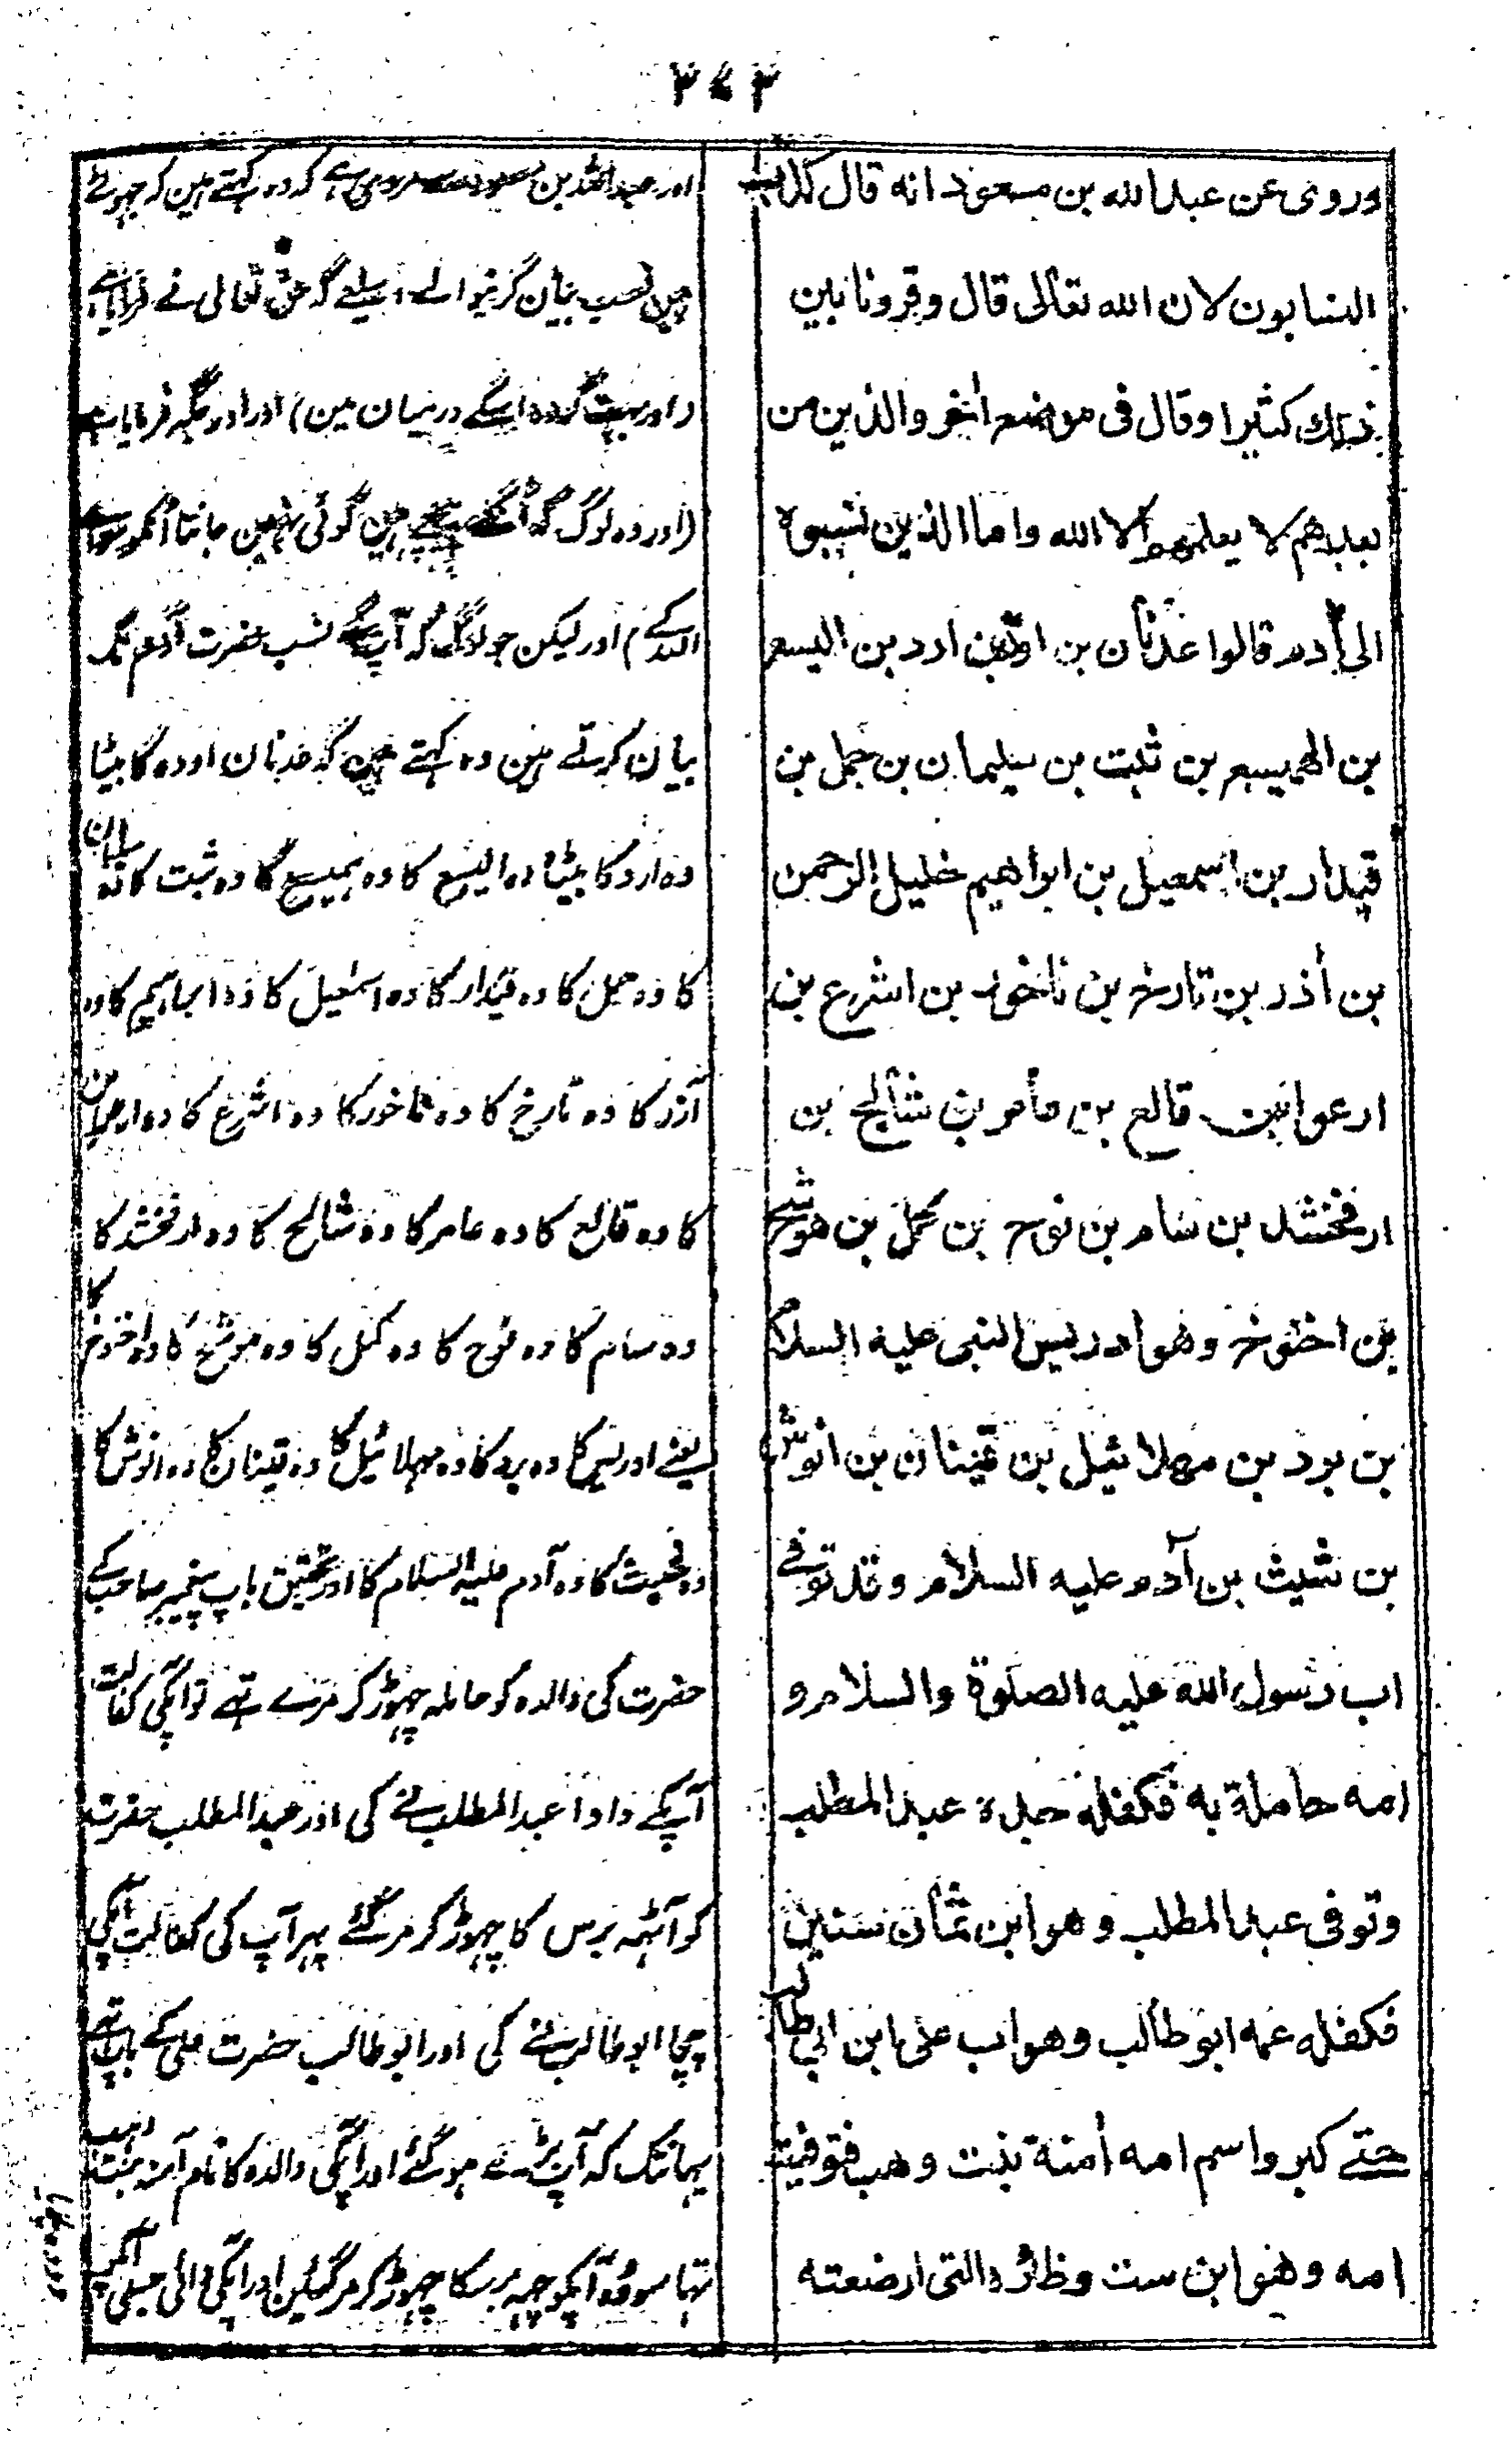 ٣٧٣
وروى عن عبد الله بن مسعود انه قال كذب
النسابون لان الله تعالى قال وقرونا بين
ذلك كثيرا وقال فى موضع اخر والذين من
بعدهم لا يعلمهم الا الله واما الذين نسبوه
الى أدم قالوا عدنان بن ادد بن اليسع
بن الهميسع بن ثبت بن سليمان بن حمل بن
قيدار بن اسمعيل بن ابراهيم خليل الرحمن
بن أذر بن تارخ بن ناخور بن اشرع بن
ارعوا بن قالع بن عامر بن شالخ بن
ارفخشد بن سام بن نوح بن كمل بن هوشخ
بن اخنوخ وهو ادريس النبى عليه السلام
بن برد بن مهلائيل بن قينان بن انوش
بن شيث بن آدم عليه السلام وقد توفے
اب رسول الله عليه الصلوة والسلام و
امه حاملة به فكفله جده عبد المطلب
وتوفى عبد المطلب وهو ابن ثمان سنين
فكفله عمه ابو طالب وهو اب على ابن ابى طالب
حتے كبر واسم امه أمنة بنت وهب فتوفيت
امه وهو ابن ست وظائره التى ارضعته
اور عبد اللہ بن مسعود سے مروی ہے کہ وہ کہتے ہین کہ جہوٹے
ہین نسب بیان کرنیوالے اسلیے کہ حق تعالی نے فرمایا ہے
(اور بہت گروہ اسکے درمیان مین) اور اور جگہ فرمایا ہے
(اور وہ لوگ کہ اُنکے پیچھے ہین کوئی نہین جانتا اُنکو سوائے
اللہ کے) اور لیکن جو لوگ کہ آپ کے نسب حضرت آدم تک
بیان کرتے ہین وہ کہتے ہین کہ عدنان اودہ کا بیٹا
وہ ارد کا بیٹا وہ الیسع کا وہ ہمیسع کا وہ ثبت کا وہ سلیمان
کا وہ حمل کا وہ قیدار کا وہ اسمٰعیل کا وہ ابراہیم کا وہ
آزر کا وہ تارخ کا وہ ناخور کا وہ اشرع کا وہ ارعوا بن
کا وہ قالع کا وہ عامر کا وہ شالح کا وہ ارفخشد کا
وہ سام کا وہ نوح کا وہ کمل کا وہ ہوشخ کا وہ اخنوخ کا
یعنے ادریس کا وہ برد کا وہ مہلائیل کا وہ قینان کا وہ انوش کا
وہ شیث کا وہ آدم علیہ السلام کا اور تحقیق باپ پیغمبر صاحب کے
حضرت کی والدہ کو حاملہ چہوڑ کر مرے تہے تو آپکی کفالت
آپکے دادا عبد المطلب نے کی اور عبد المطلب حضرت
کو آٹہہ برس کا چہوڑ کر مر گئے پہر آپ کی کفالت آپکی
چچا ابو طالب نے کی اور ابو طالب حضرت علی کے باپ تہے
یہانتک کہ آپ بڑے ہو گئے اور آپکی والدہ کا نام آمنہ بنت وہب
تہا سو وہ آپکو چہہ برسکا چہوڑ کر مر گئین اور آپکی دائی